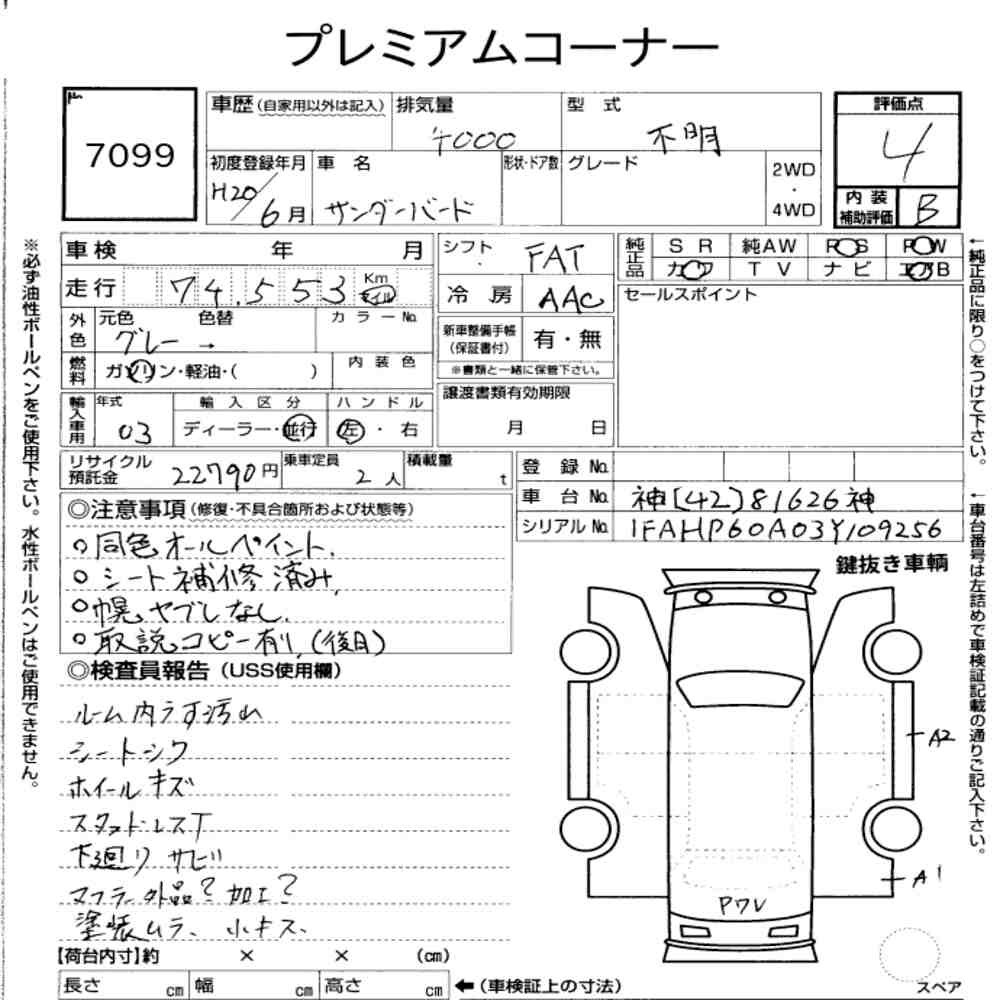 プレミアムコーナー
7099
車歴(自家用以外は記入) 排気量 型 式
4000 不明
初度登録年月 車 名 形状・ドア数 グレード 2WD ・ 4WD
H20/6月 サンダーバード
評価点
4
内装補助評価 B
車検 年 月
走行 74,553 Km マイル
外色 元色 色替 カラーNo.
グレー →
燃料 ガソリン・軽油・( ) 内装色
輸入車用 年式 輸入区分 ハンドル
03 ディーラー・並行 左・右
シフト FAT
冷房 AAC
新車整備手帳(保証書付) 有・無
※書類と一緒に保管下さい。
譲渡書類有効期限
月 日
純正品 SR 純AW PS PW
カワ TV ナビ エアB
セールスポイント
リサイクル預託金 22790円 乗車定員 2人 積載量 t
登録No.
車台No. 神[42]81626神
シリアルNo. 1FAHP60A03Y109256
◎注意事項(修復・不具合箇所および状態等)
○同色オールペイント.
○シート補修済み,
○幌ヤブレなし.
○取説コピー有り.(後日)
◎検査員報告(USS使用欄)
ルーム内うす汚れ
シートシワ
ホイールキズ
スタッドレスT
下廻りサビ
マフラー外品?加工?
塗装ムラ、小キズ、
【荷台内寸】約 × × (cm)
長さ cm 幅 cm 高さ cm ←(車検証上の寸法)
鍵抜き車輌
A2
A1
Pワレ
スペア
※必ず油性ボールペンをご使用下さい。水性ボールペンはご使用できません。
←純正品に限り○をつけて下さい。
←車台番号は左詰めで車検証記載の通りご記入下さい。